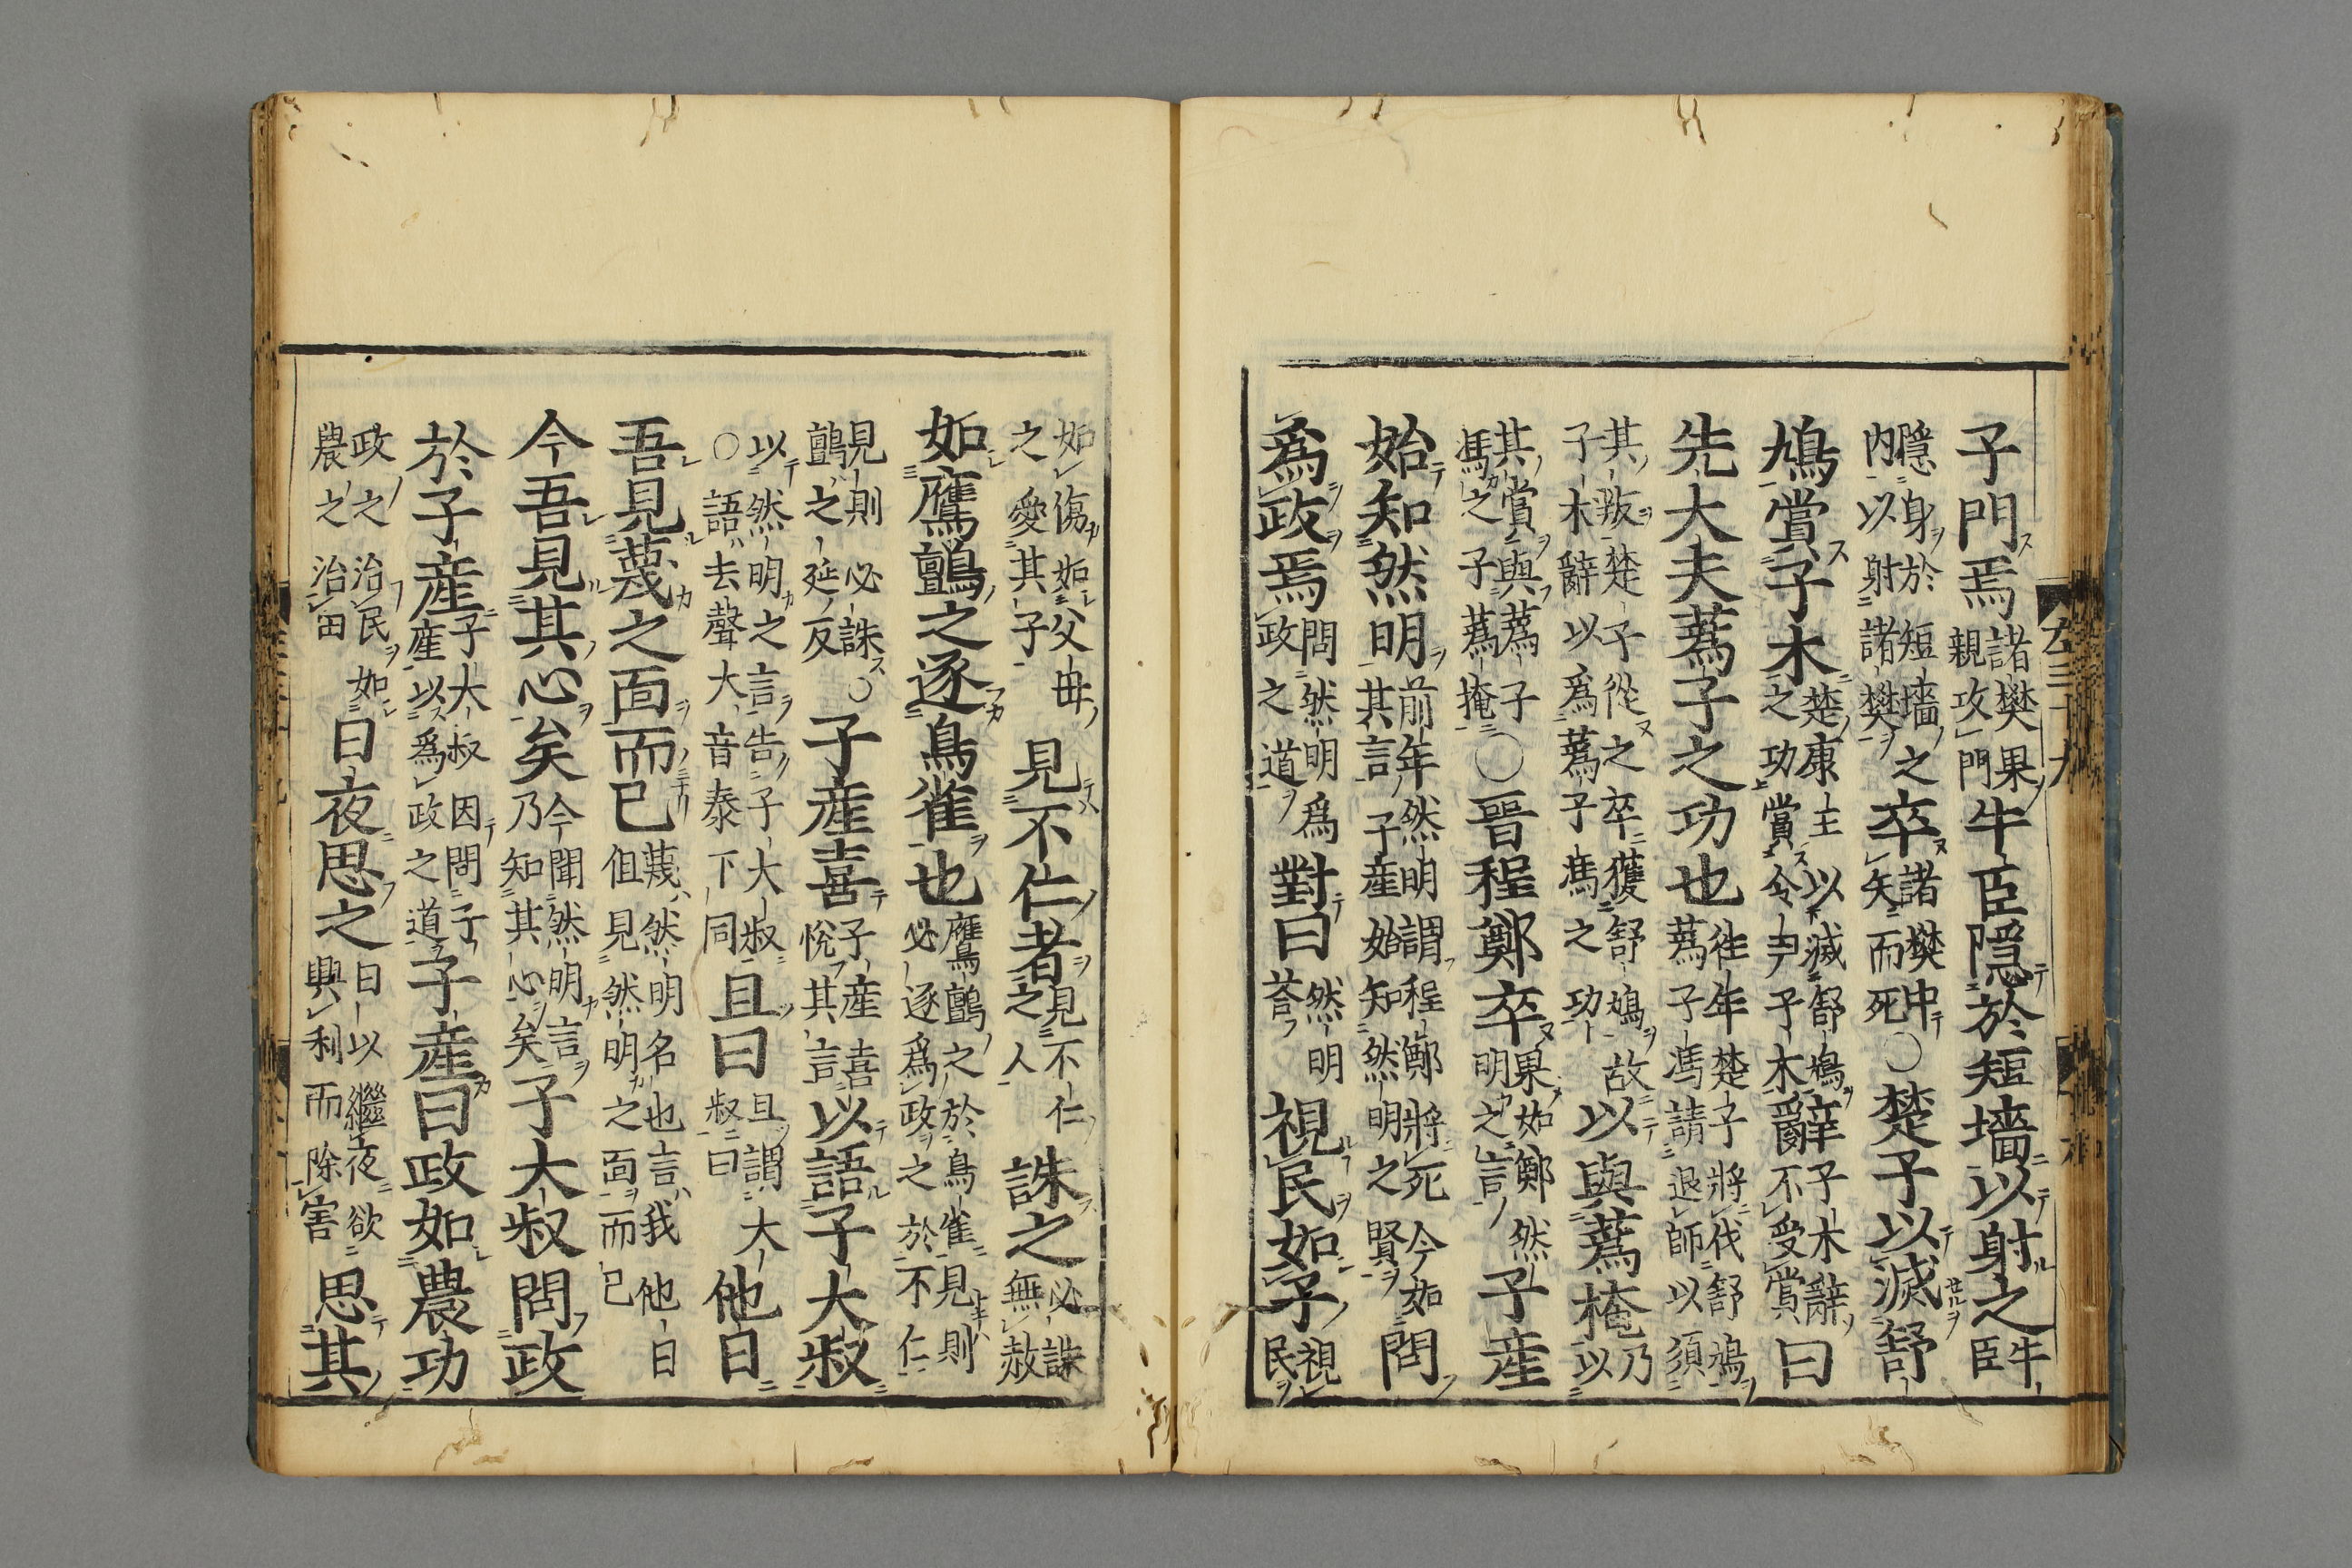 子門焉諸樊果親攻門牛臣隱於短墻以射之牛臣
隱身於短墻之內以射諸樊卒諸樊中矢而死○楚子以滅舒
鳩賞子木楚康王以滅舒鳩之功賞令尹子木辭子木辭不受賞曰
先大夫蒍子之功也徃年楚子將伐舒鳩蒍子馮請退師以須
其叛楚子從之卒獲舒鳩故子木辭以爲蒍子馮之功以與蒍掩乃以
其賞與蒍子馮之子蒍掩○晉程鄭卒果如鄭然明之言子產
始知然明前年然明謂程鄭將死今如其言子產始知然明之賢問
爲政焉問然明爲政之道對曰然明荅視民如子視民
如傷如父母之愛其子見不仁者見不仁之人誅之必誅無赦
如鷹鸇之逐鳥雀也鷹鸇之於鳥雀見則必逐爲政之於不仁
見則必誅○鸇之延反子產喜子產喜悅其言以語子大叔
以然明之言告子大叔○語去聲大音泰下同且曰且謂大叔曰他日
吾見蔑之面而已蔑然明名也言我他日但見然明之面而已
今吾見其心矣今聞然明言乃知其心矣子大叔問政
於子產子大叔因問子產以爲政之道子產曰政如農功
政之治民如農之治田日夜思之日以繼夜欲興利而除害思其